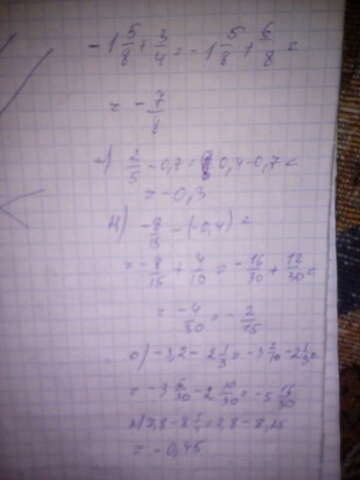 -1 5/8 + 3/4 = -1 5/8 + 6/8 =
= - 7/8
2/5 - 0,7 = 0,4 - 0,7 =
= -0,3
- 8/15 - (-0,4) =
= - 8/15 + 4/10 = - 16/30 + 12/30 =
= -4/30 = - 2/15
о) -3,2 - 2 1/3 = -3 2/10 - 2 1/3 =
= -3 6/30 - 2 10/30 = -5 16/30
7,8 - 8 1/4 = 7,8 - 8,25
= -0,45